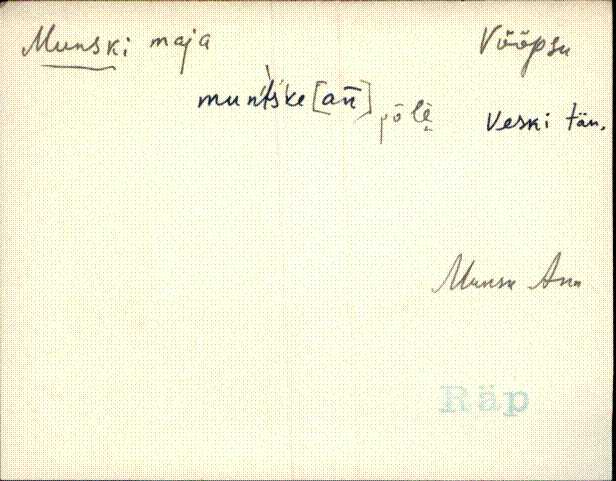 Munski maja Vööpsu
muńt́ś'ke [ań] pǒlè̬ Veski tän.
Munsu Ann
Räp